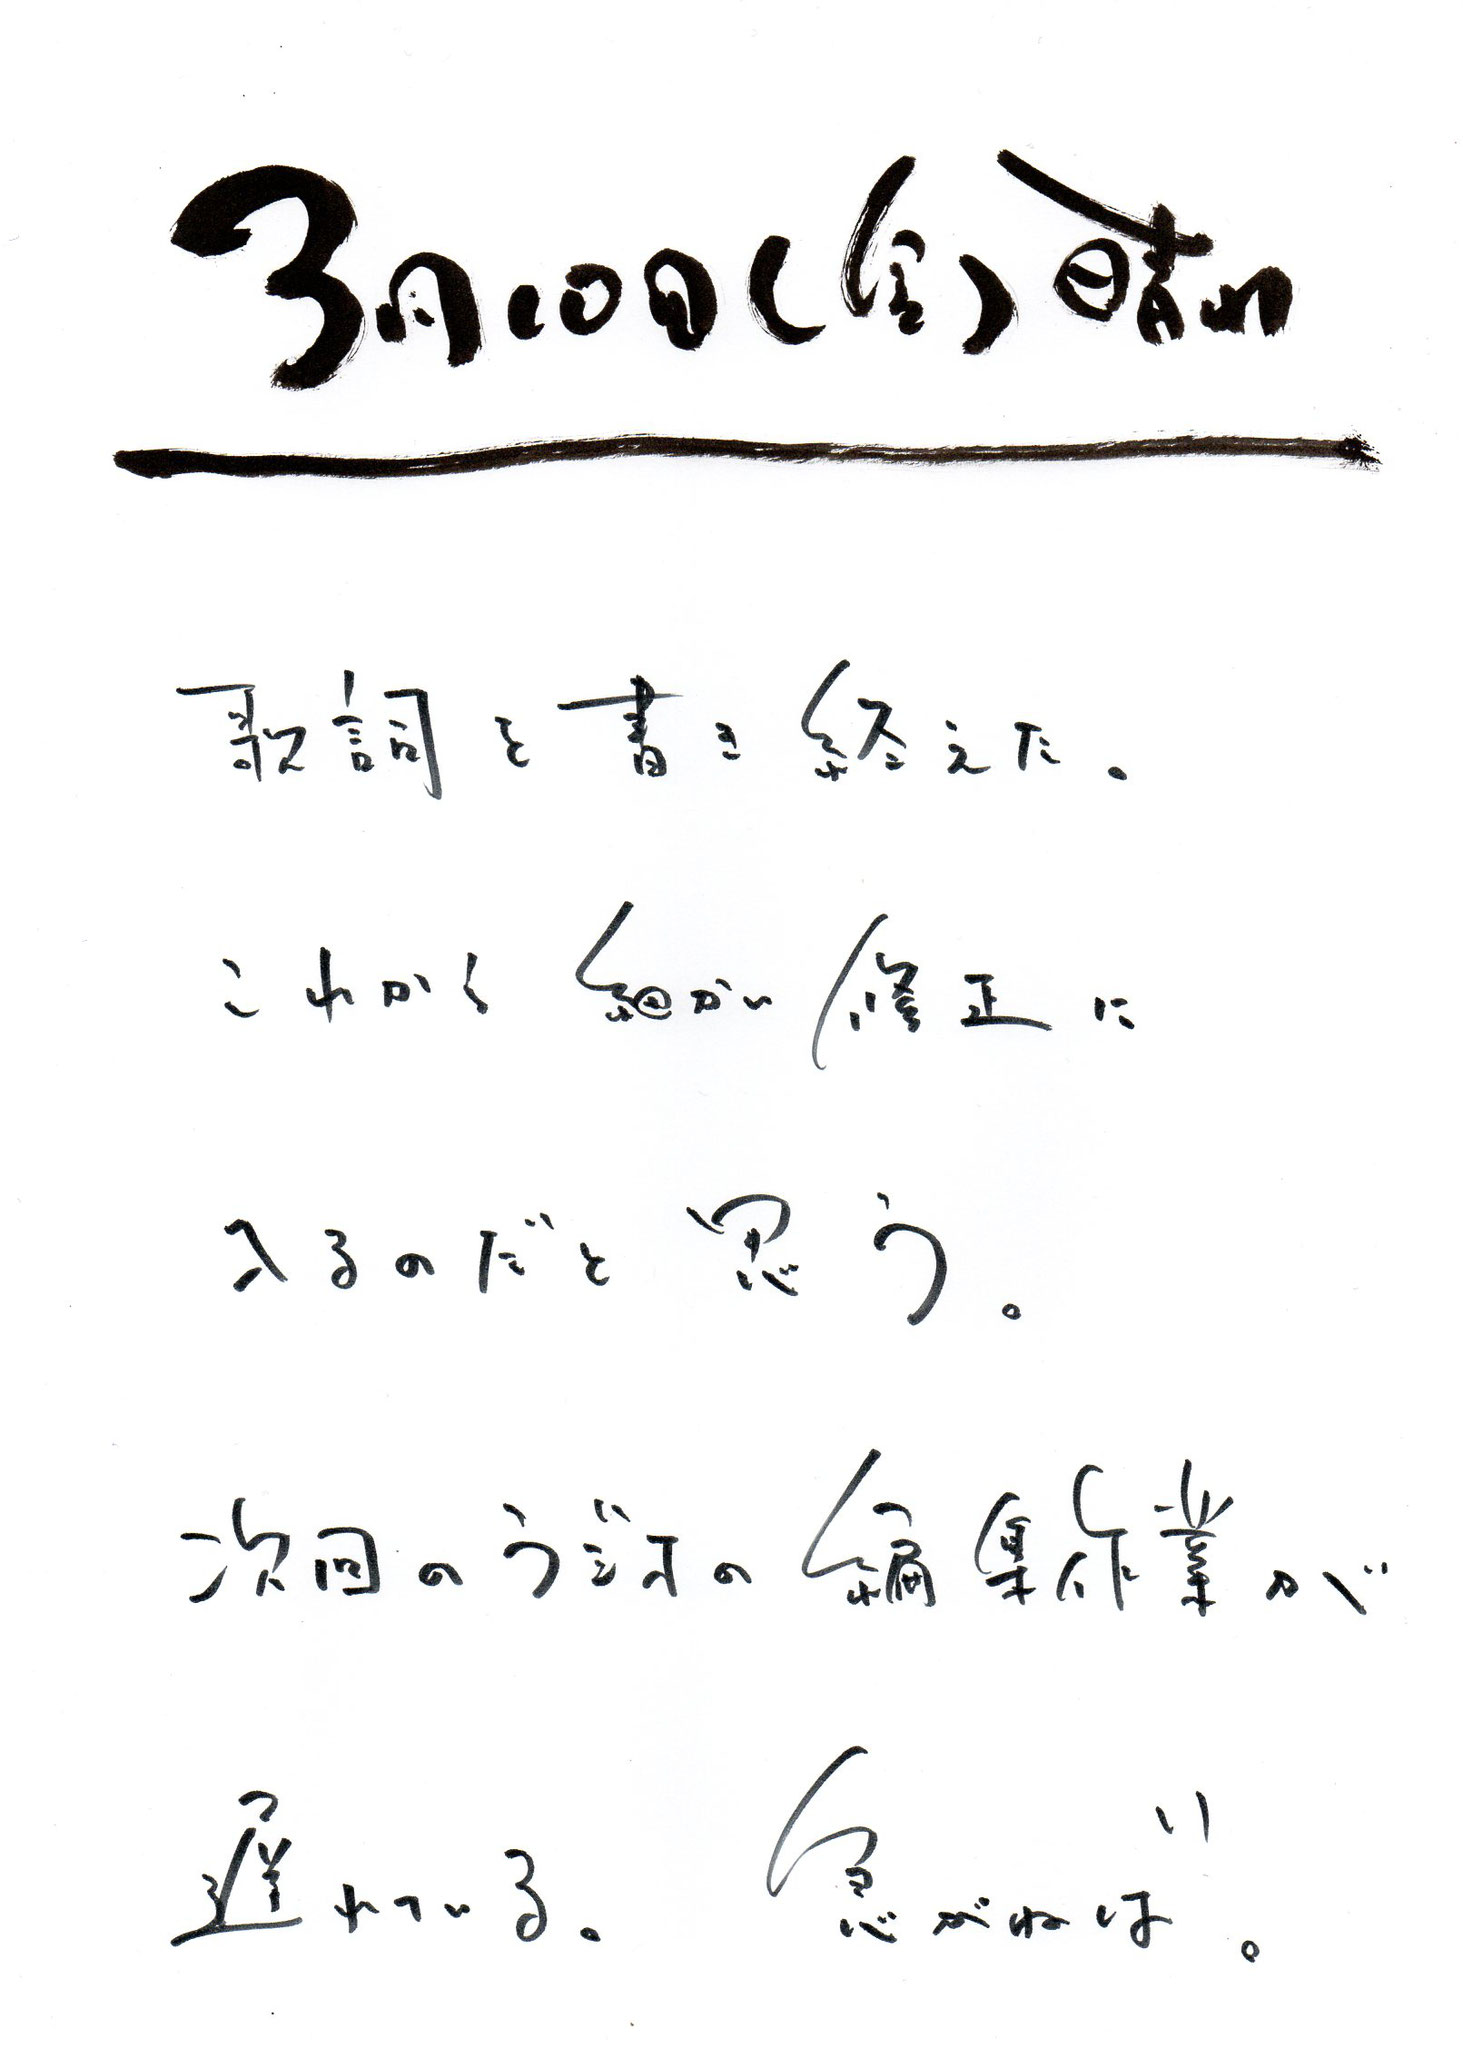 3月10日(金)晴れ
歌詞を書き終えた。
これから細かい修正に
入るのだと思う。
次回のラジオの編集作業が
遅れている。急がねば。